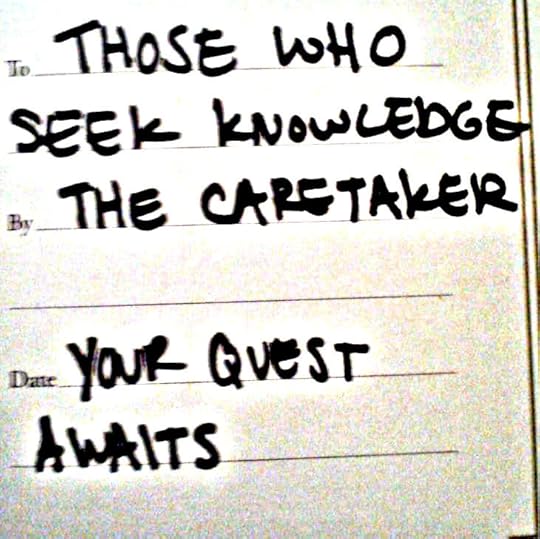 To THOSE WHO
SEEK KNOWLEDGE
By THE CARETAKER
Date YOUR QUEST
AWAITS